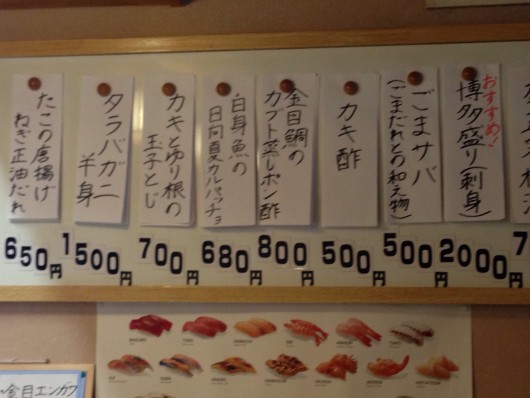 おすすめ!
博多盛り(刺身)
2000円
ごまサバ
(ごまだれとの和え物)
500円
カキ酢
500円
金目鯛の
カブト蒸しポン酢
800円
白身魚の
日向夏カルパッチョ
680円
カキとゆり根の
玉子とじ
700円
タラバガニ
半身
1500円
たこの唐揚げ
ねぎ正油だれ
650円
金目エンガワ